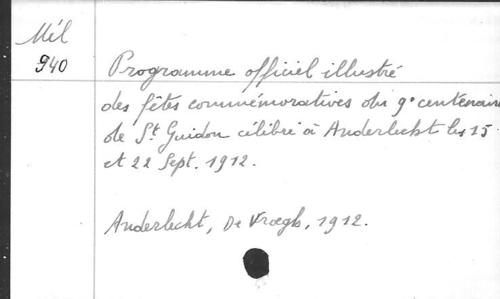 Mél
940
Programme officiel illustré
des fêtes commémoratives du 9e centenaire
de St Guidon célébré à Anderlecht les 15
et 22 Sept. 1912.
Anderlecht, De Vroegh, 1912.